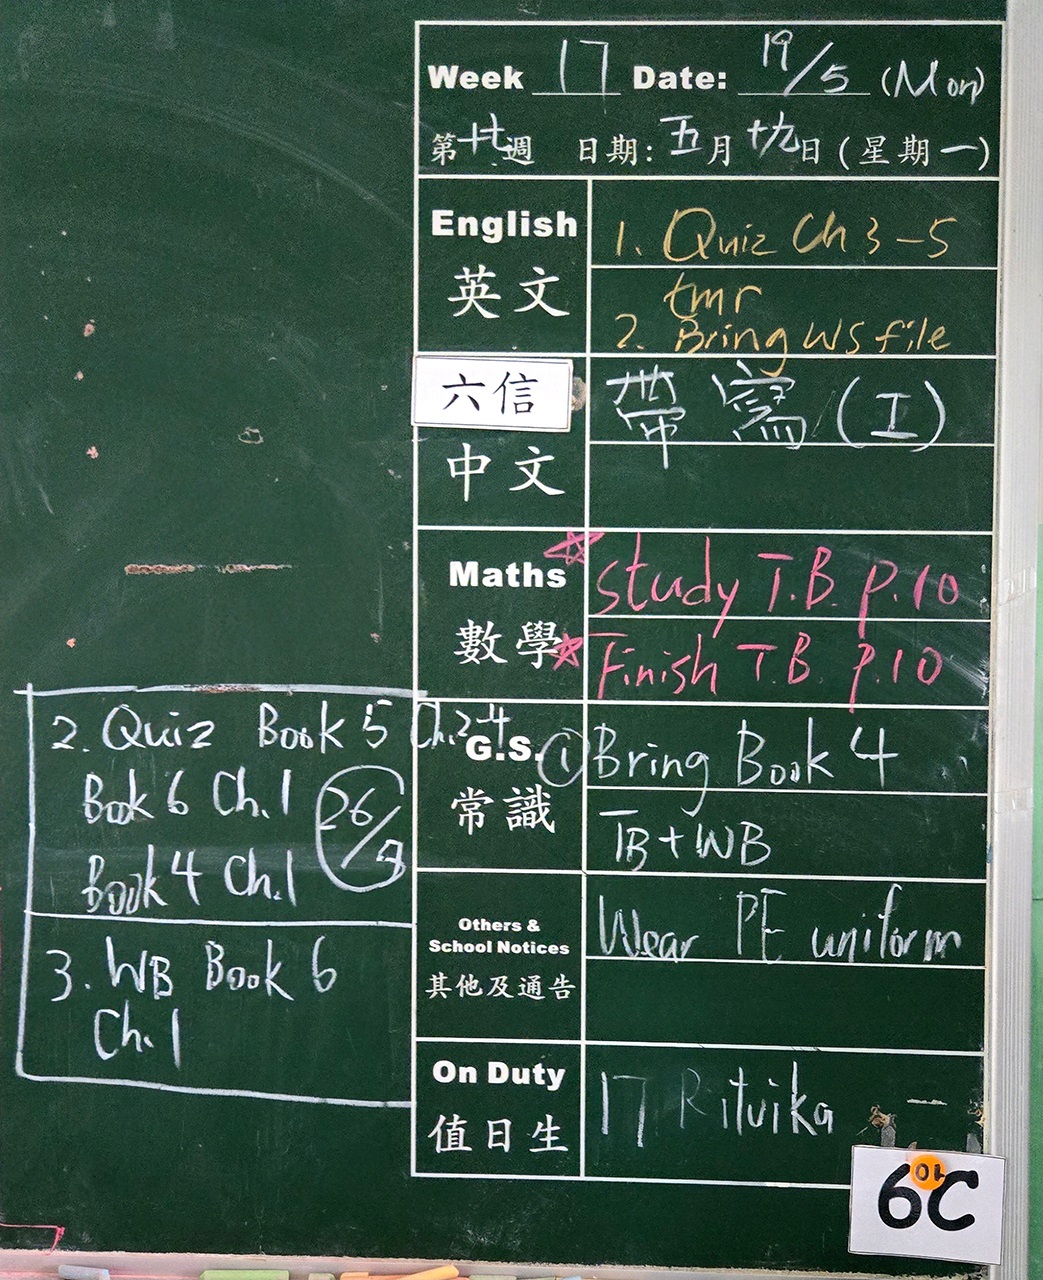 Week 17 Date: 19/5 (Mon)
第十七週 日期: 五月十九日 (星期一)
English
英文
1. Quiz Ch 3-5
tmr
2. Bring WS file
六信
中文
帶寫 (I)
Maths
數學
☆ Study T.B. p.10
☆ Finish T.B. p.10
G.S.
常識
① Bring Book 4
TB + WB
2. Quiz Book 5 Ch.2-4
Book 6 Ch.1
Book 4 Ch.1
26/5
3. WB Book 6
Ch.1
Others &
School Notices
其他及通告
Wear PE uniform
On Duty
值日生
17 Rituika
6C